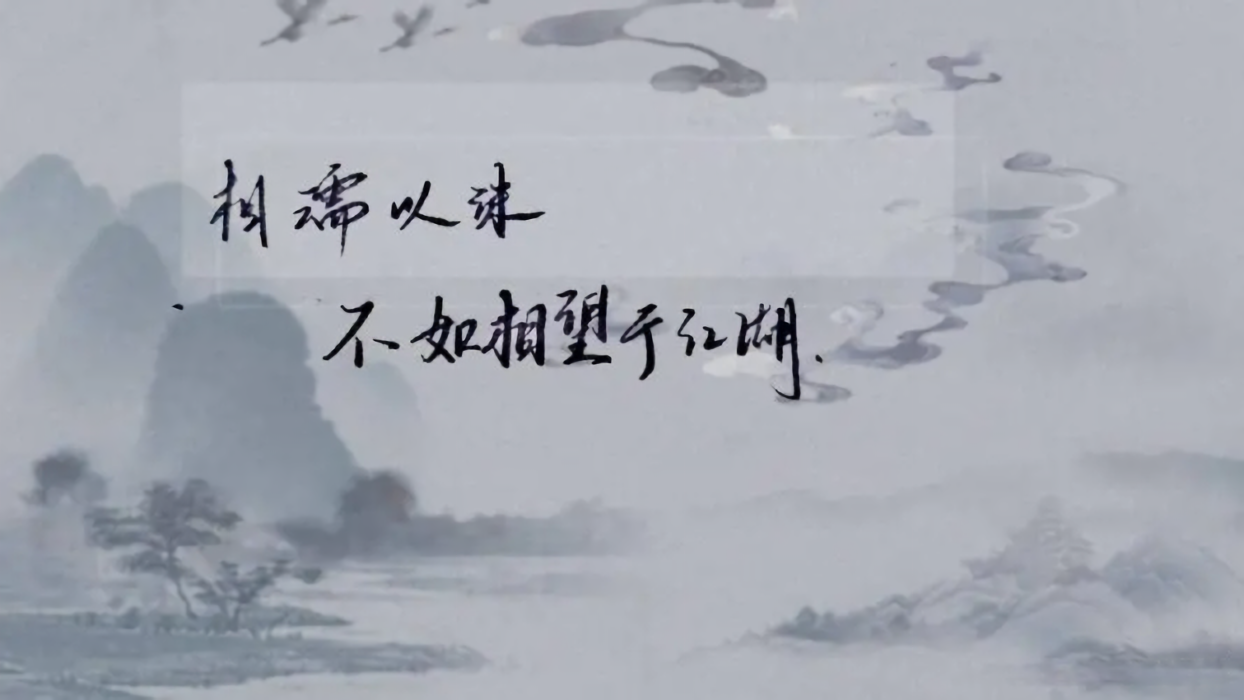 相濡以沫
不如相望于江湖.